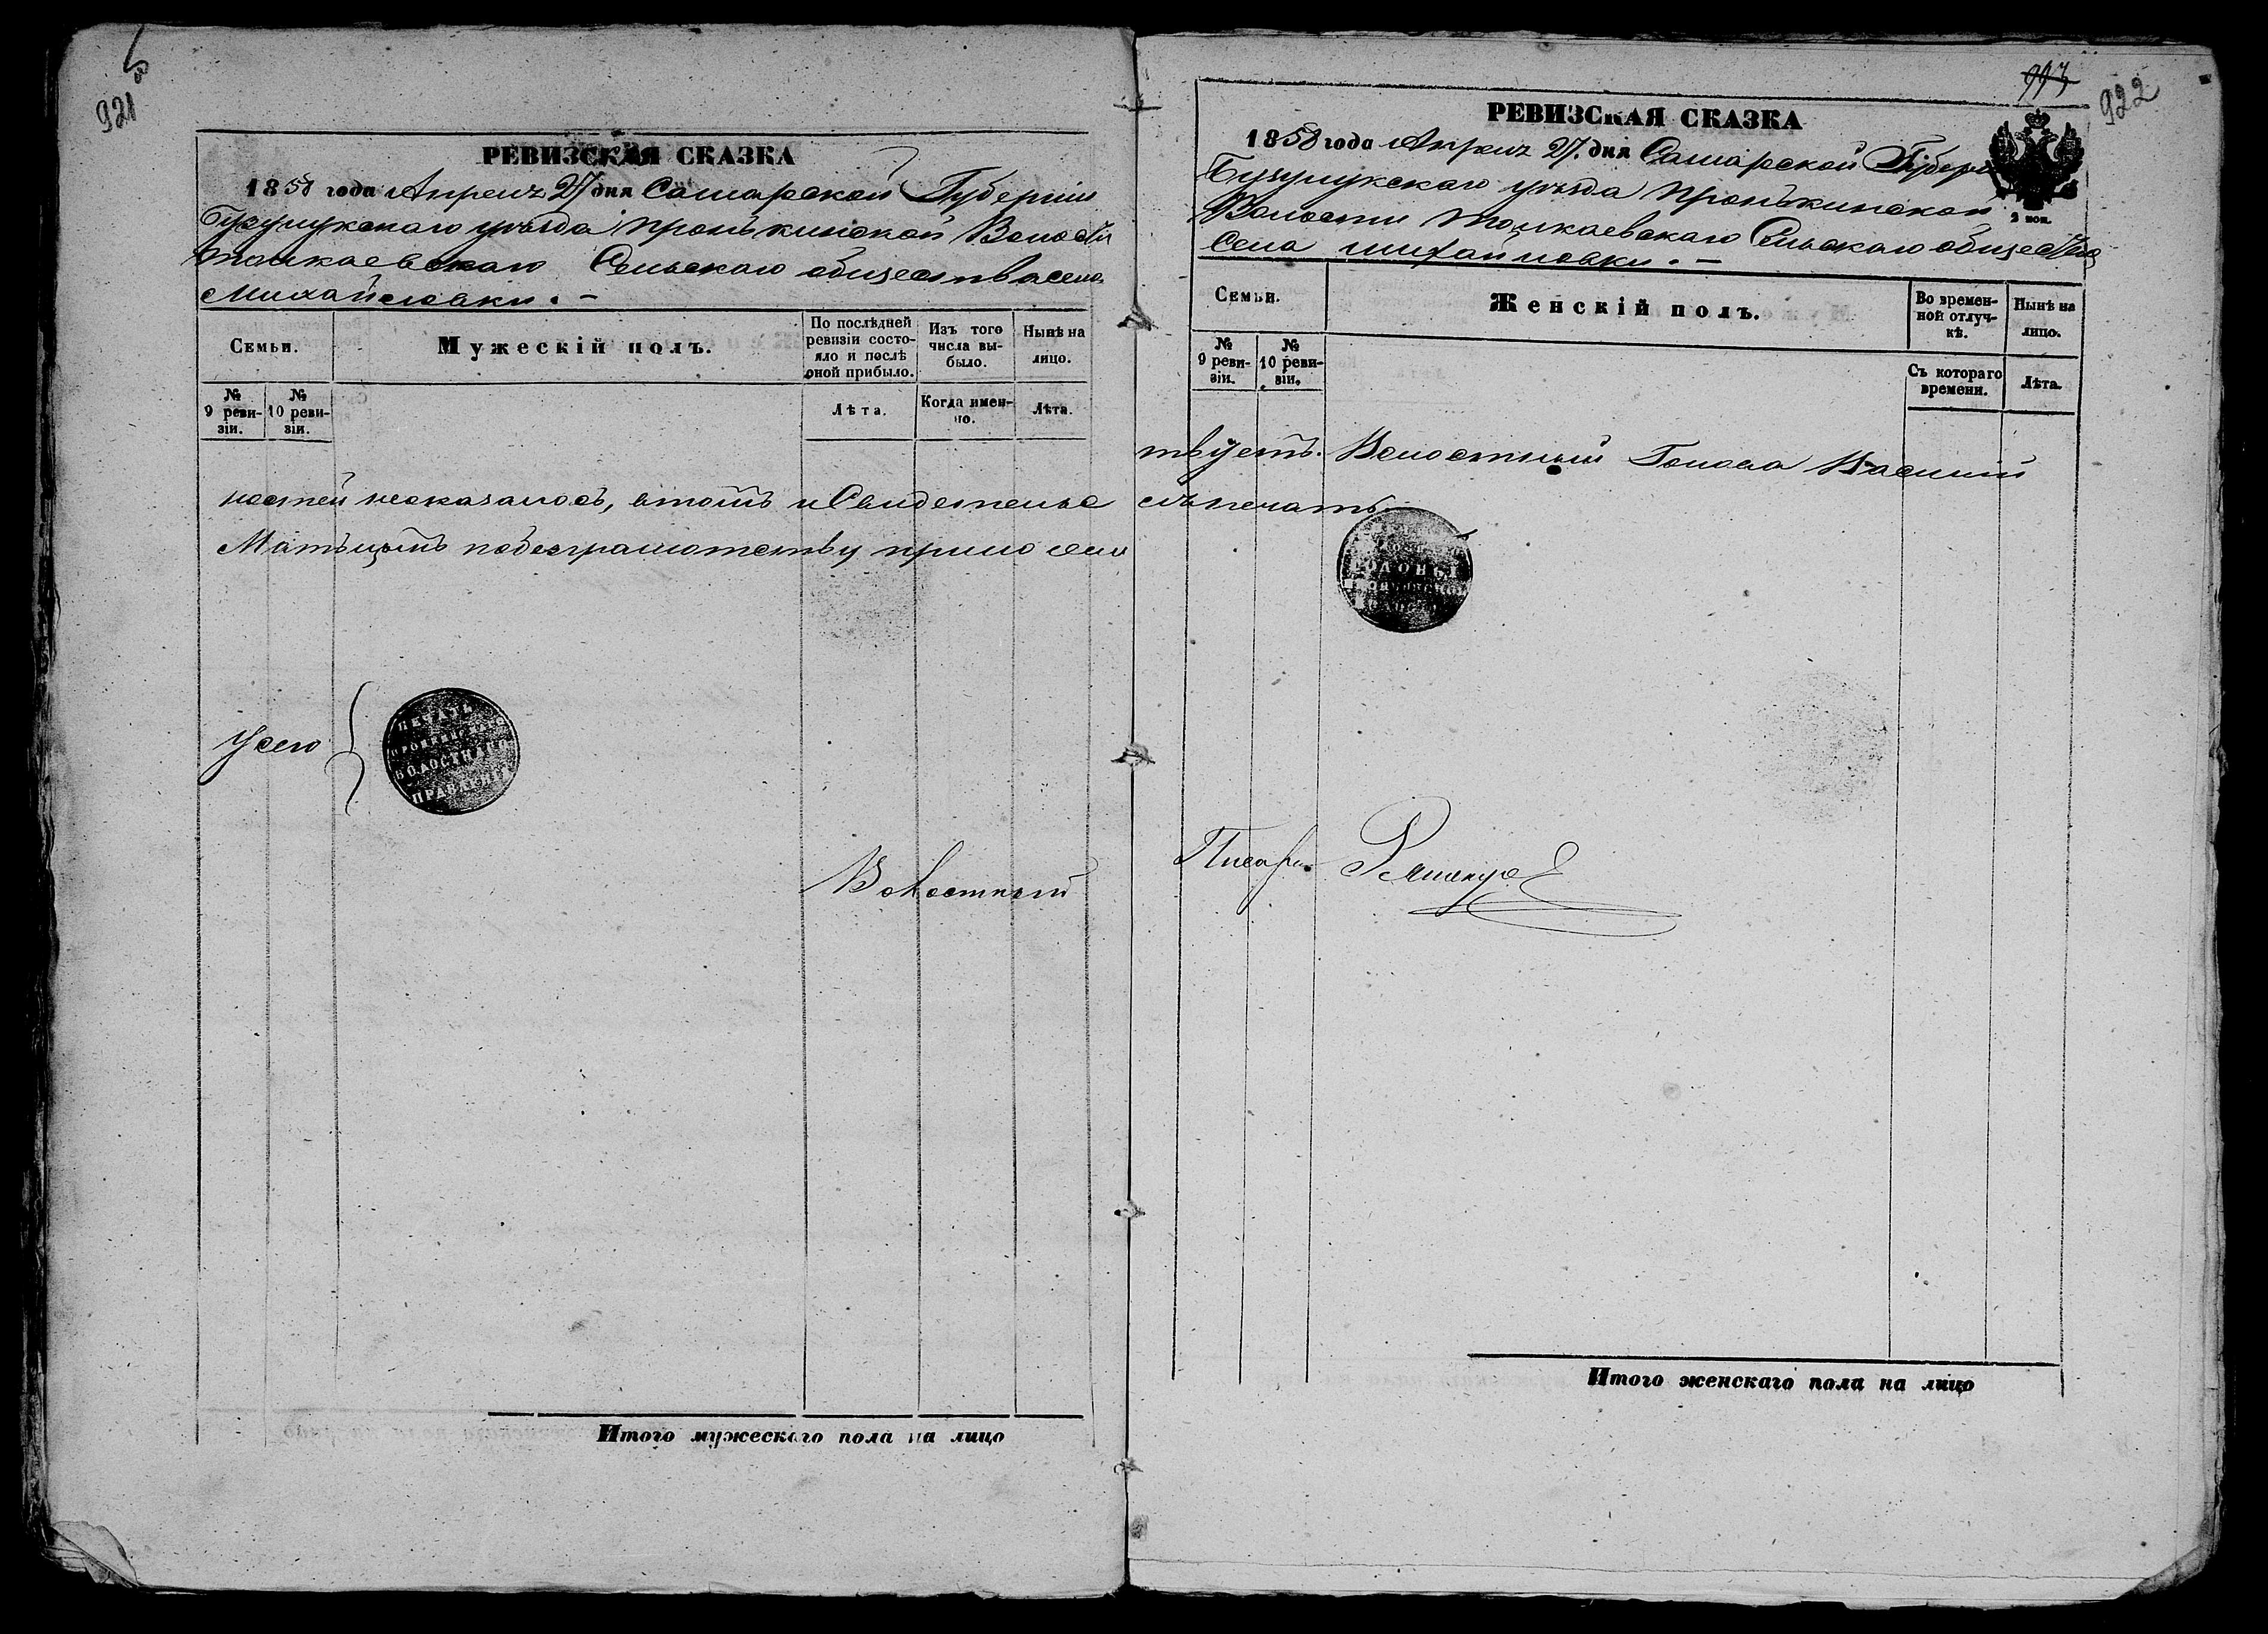 921
РЕВИЗСКАЯ СКАЗКА
1858 года Апреля 27 дня Самарской Губерніи
Бузулукскаго уѣзда Пронькинской Волости
Толкаевскаго Сельскаго общества села
Михайловки. –
Семьи.
Мужескій полъ.
По послѣдней ревизіи состо-
яло и послѣ
оной прибыло.
Изъ того
числа вы-
было.
Нынѣ на
лицо.
№
9 реви-
зіи.
№
10 реви-
зіи.
Лѣта.
Когда имен-
но.
Лѣта.
ностей неоказалось, втомъ и Свидетельс
побезграмотству приложелъ
У сего
ПЕЧАТЬ
ПРОНКИНСКАГО
ВОЛОСТНАГО
ПРАВЛЕНІЯ
Волостный
Итого мужескаго пола на лицо
993
922
РЕВИЗСКАЯ СКАЗКА
1858 года Апреля 27. дня Самарской Губерн
Бузулукскаго уѣзда Пронькинской
Волости Толкаевскаго Сельскаго общества
Села Михайловки. –
2 коп.
Семьи.
Женскій полъ.
Во времен-
ной отлуч-
кѣ.
Нынѣ на
лицо.
№
9 реви-
зіи.
№
10 реви-
зіи.
Съ котораго
времени.
Лѣта.
твуетъ. Волостный Голова Василий
печать
Писарь
Итого женскаго пола на лицо